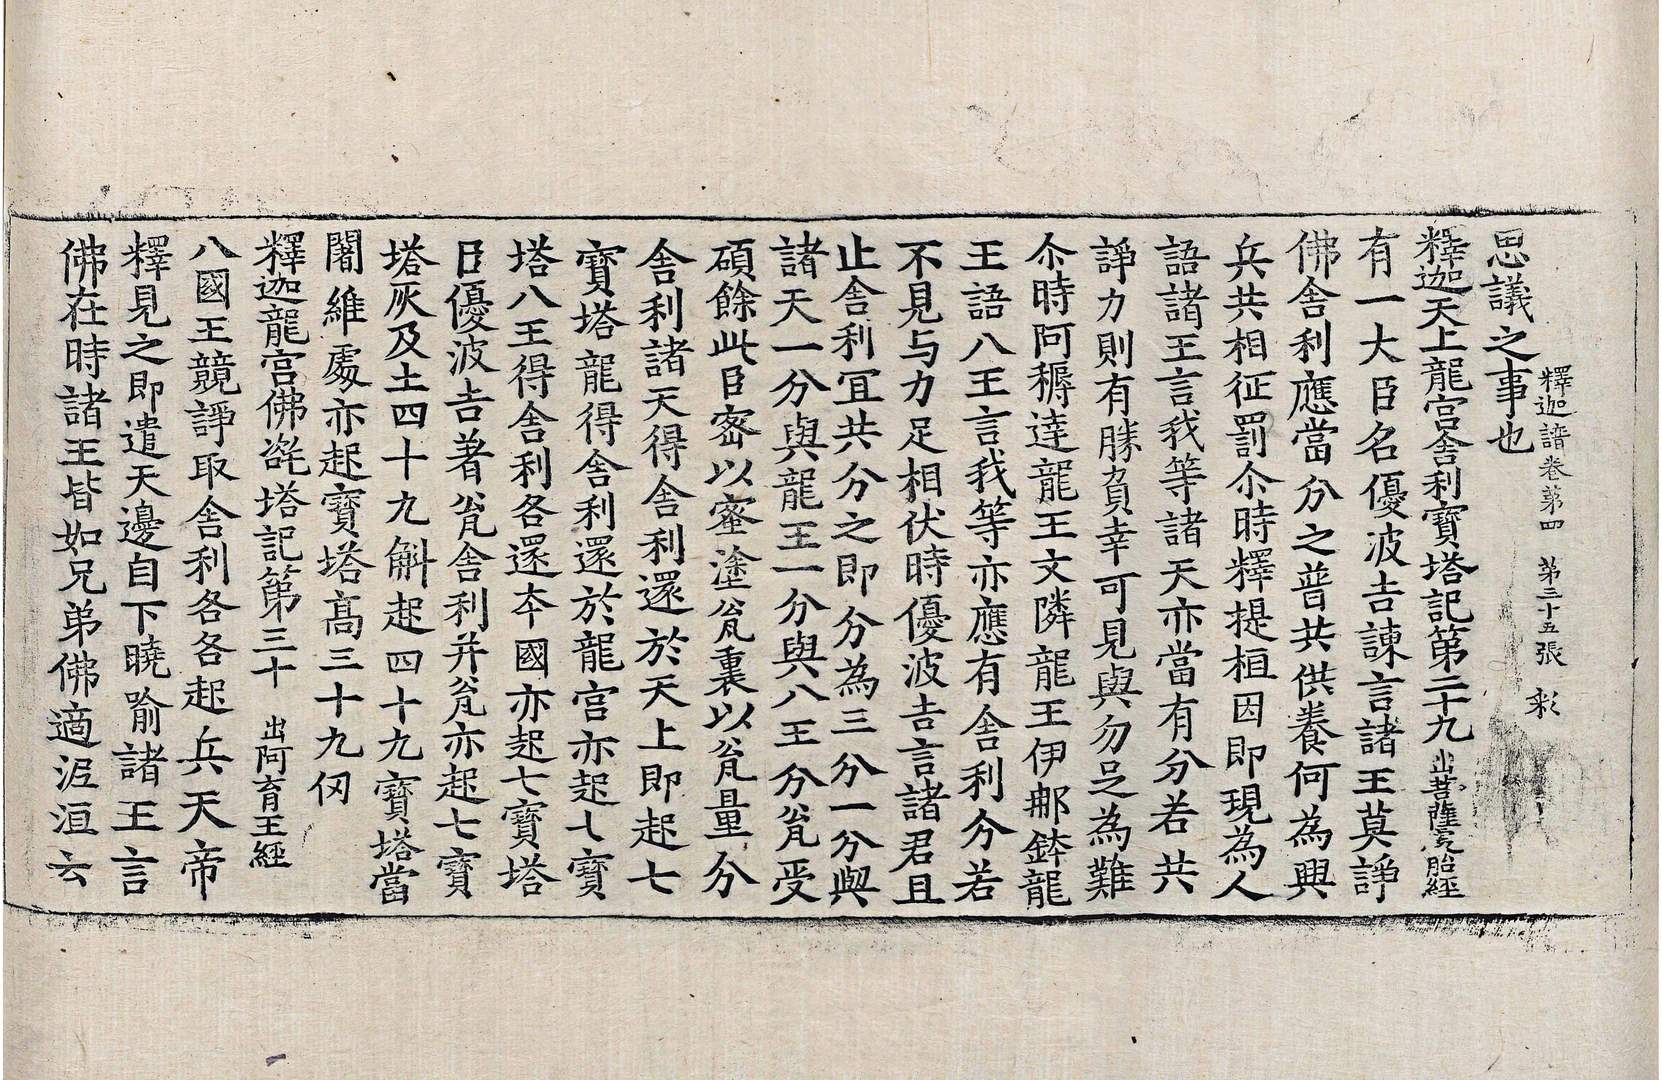 釋迦譜卷第四　第三十五張　彩
思議之事也
釋迦天上龍宮舍利寶塔記第二十九 出菩薩處胎經
有一大臣名優波吉諫言諸王莫諍
佛舍利應當分之普共供養何為興
兵共相征罰尒時釋提桓因即現為人
語諸王言我等諸天亦當有分若共
諍力則有勝負幸可見與勿足為難
尒時阿耨達龍王文隣龍王伊那鉢龍
王語八王言我等亦應有舍利分若
不見与力足相伏時優波吉言諸君且
止舍利冝共分之即分為三分一分與
諸天一分與龍王一分與八王分瓮受
碩餘此臣密以蜜塗瓮裏以瓮量分
舍利諸天得舍利還於天上即起七
寶塔龍得舍利還於龍宮亦起七寶
塔八王得舍利各還夲國亦起七寶塔
臣優波吉著瓮舍利并瓮亦起七寶
塔灰及土四十九斛起四十九寶塔當
闍維處亦起寶塔高三十九仞
釋迦龍宮佛髭塔記第三十 出阿育王經
八國王競諍取舍利各各起兵天帝
釋見之即遣天邊自下曉喻諸王言
佛在時諸王皆如兄弟佛適泥洹云